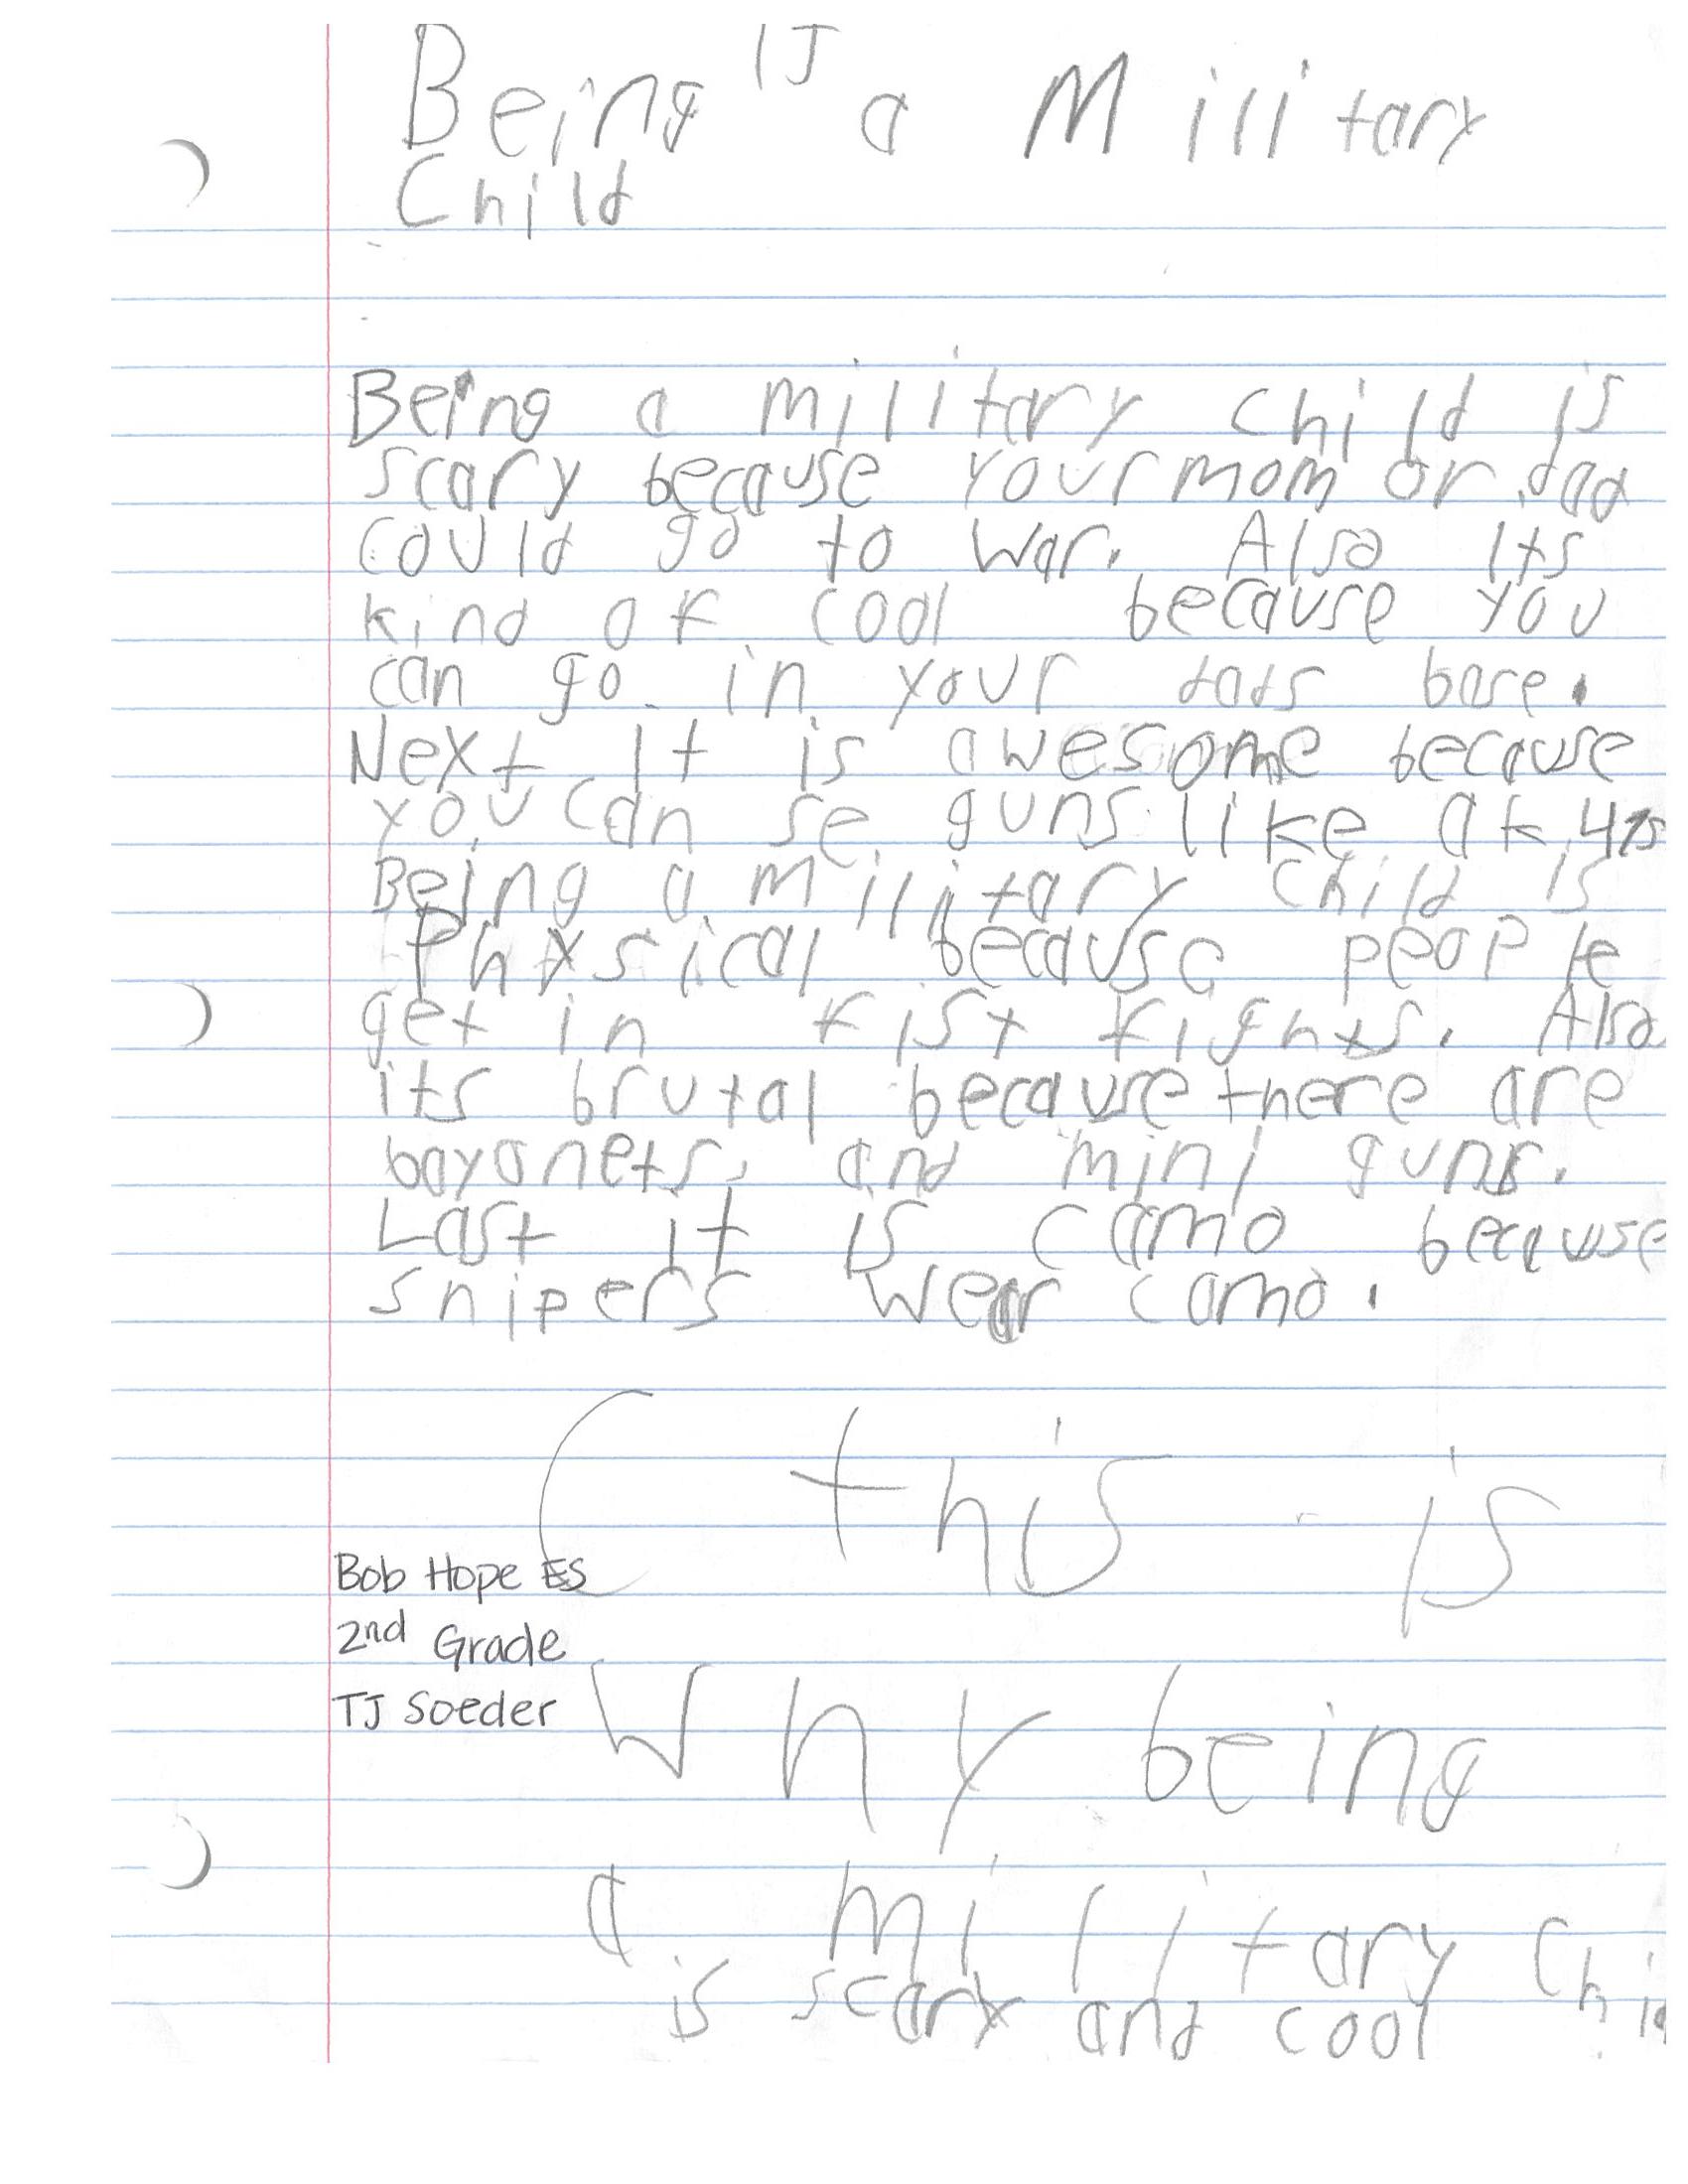 TJ
Being a Military
Child
Being a military child is
scary because your mom or dad
could go to war. Also its
kind of cool because you
can go in your dads base.
Next it is awesome because
you can se guns like ak 47s
Being a military child is
Physical because people
get in fist fights. Also
its brutal because there are
bayonets, and mini guns.
Last it is camo because
snipers wear camo.
( this is
Bob Hope ES
2nd Grade
TJ Soeder
Why being
a military Child
is scary and cool